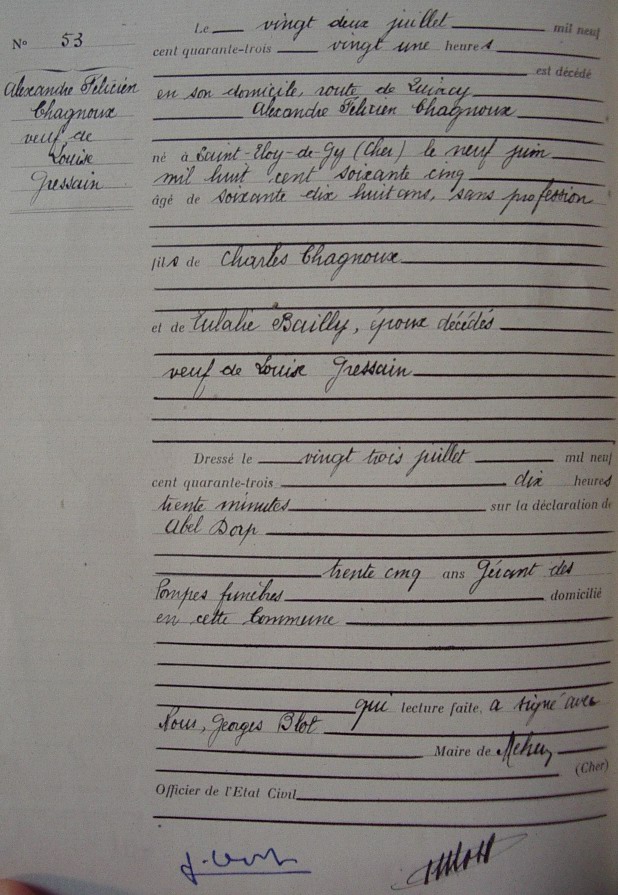 N° 53
Alexandre Félicien
Chagnoux
veuf de
Louise
Gressain
Le vingt deux juillet mil neuf
cent quarante-trois vingt une heures
est décédé
en son domicile, route de Quincy
Alexandre Félicien Chagnoux
né à Saint-Eloy-de-Gy (Cher) le neuf juin
mil huit cent soixante cinq
âgé de soixante dix huit ans, sans profession
fils de Charles Chagnoux
et de Eulalie Bailly, époux décédés
veuf de Louise Gressain
Dressé le vingt trois juillet mil neuf
cent quarante-trois dix heures
trente minutes sur la déclaration de
Abel
trente cinq ans Gérant des
Pompes funèbres domicilié
en cette Commune
qui lecture faite, a signé avec
Nous, Georges Blot
Maire de Mehun
(Cher)
Officier de l'Etat Civil